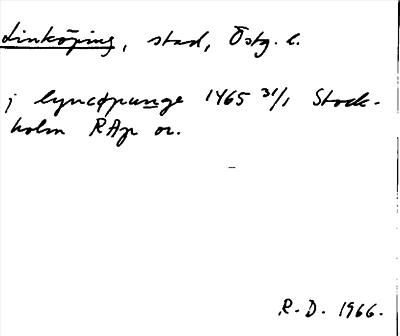 Linköping, stad, Östg. l.
j lyncøpunge 1465 31/1 Stock-
holm RAp or.
R. D. 1966.